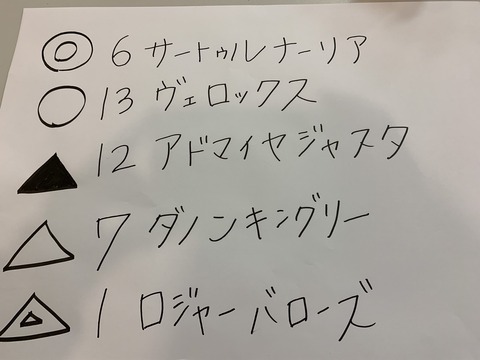 ◎ 6 サートゥルナーリア
○ 13 ヴェロックス
▲ 12 アドマイヤジャスタ
△ 7 ダノンキングリー
△ 1 ロジャーバローズ